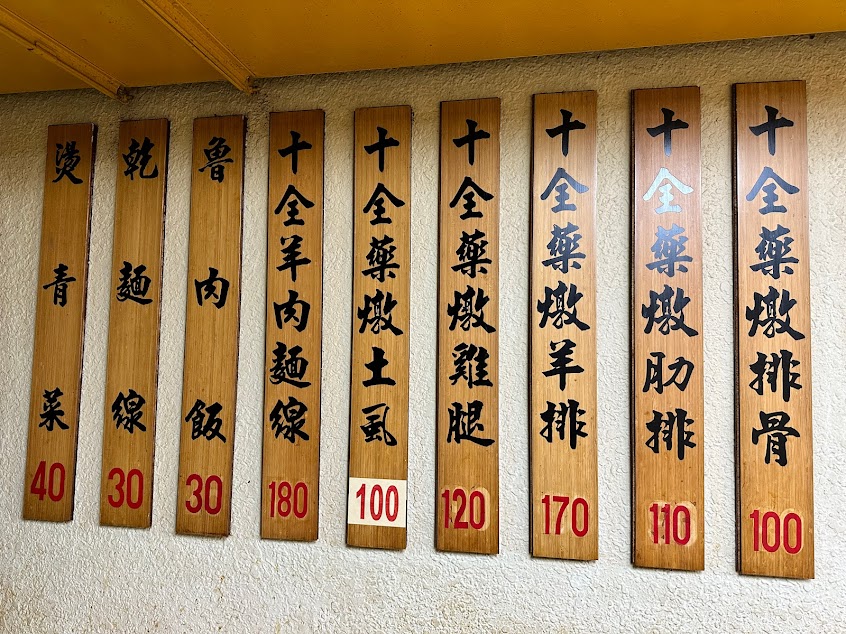 十全藥燉排骨
100
十全藥燉肋排
110
十全藥燉羊排
170
十全藥燉雞腿
120
十全藥燉土虱
100
十全羊肉麵線
180
魯肉飯
30
乾麵線
30
燙青菜
40